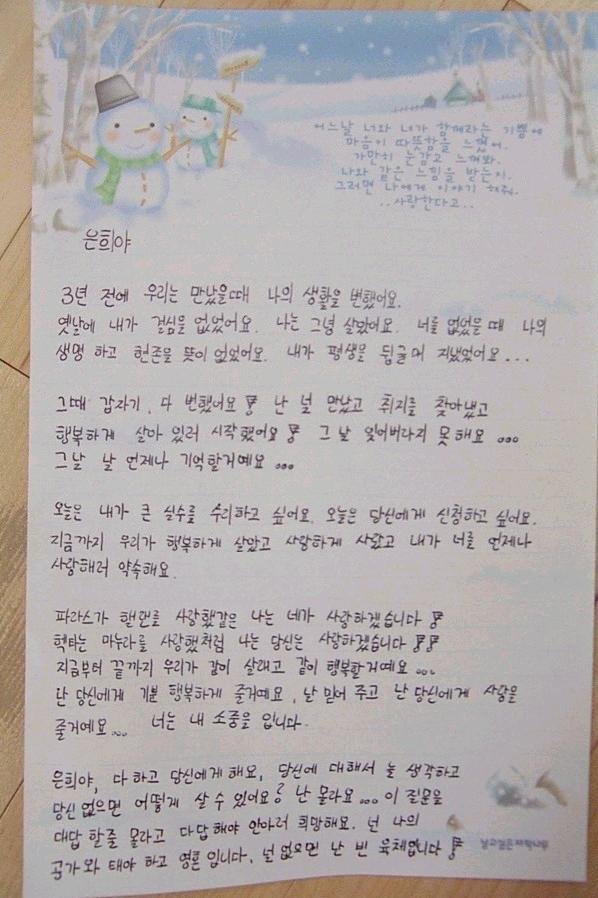 어느날 너와 너가 함께라는 기쁨에
마음이 따뜻함을 느꼈어.
가만히 눈감고 느껴봐.
나와 같은 느낌을 받는지.
그러면 나에게 이야기 해줘.
..사랑한다고..
은희야
3년 전에 우리는 만났을때 나의 생활을 변했어요.
옛날에 내가 결심을 없었어요. 나는 그녕 살았어요. 너를 없었을 때 나의
생명 하고 현존을 뜻이 없었어요. 내가 평생을 뒹글며 지냈었어요...
그때 갑자기, 다 변했어요! 난 널 만났고 취지를 찾아냈고
행복하게 살아 있러 시작했어요! 그 날 잊어버리지 못해요...
그날 날 언제나 기억할거예요...
오늘은 내가 큰 실수를 수리하고 싶어요. 오늘은 당신에게 신청하고 싶어요.
지금까지 우리가 행복하게 살았고 사랑하게 사랐고 내가 너를 언제나
사랑해러 약속해요.
파라스가 핼랜를 사랑했같은 나는 네가 사랑하겠습니다!
헥타는 마누라를 사랑했처럼 나는 당신은 사랑하겠습니다!!
지금부터 끝까지 우리가 같이 살래고 같이 행복할거예요...
난 당신에게 기분 행복하게 줄거예요, 날 믿어 주고 난 당신에게 사랑을
줄거예요... 너는 내 소중을 입니다.
은희야, 다 하고 당신에게 해요, 당신에 대해서 늘 생각하고
당신 없으면 어떻게 살 수 있어요? 난 몰라요... 이 질문을
대답 할줄 몰라고 다답해야 안아러 희망해요. 넌 나의
곱가와 태야 하고 영혼 입니다, 널 없으면 난 빈 육체입니다!